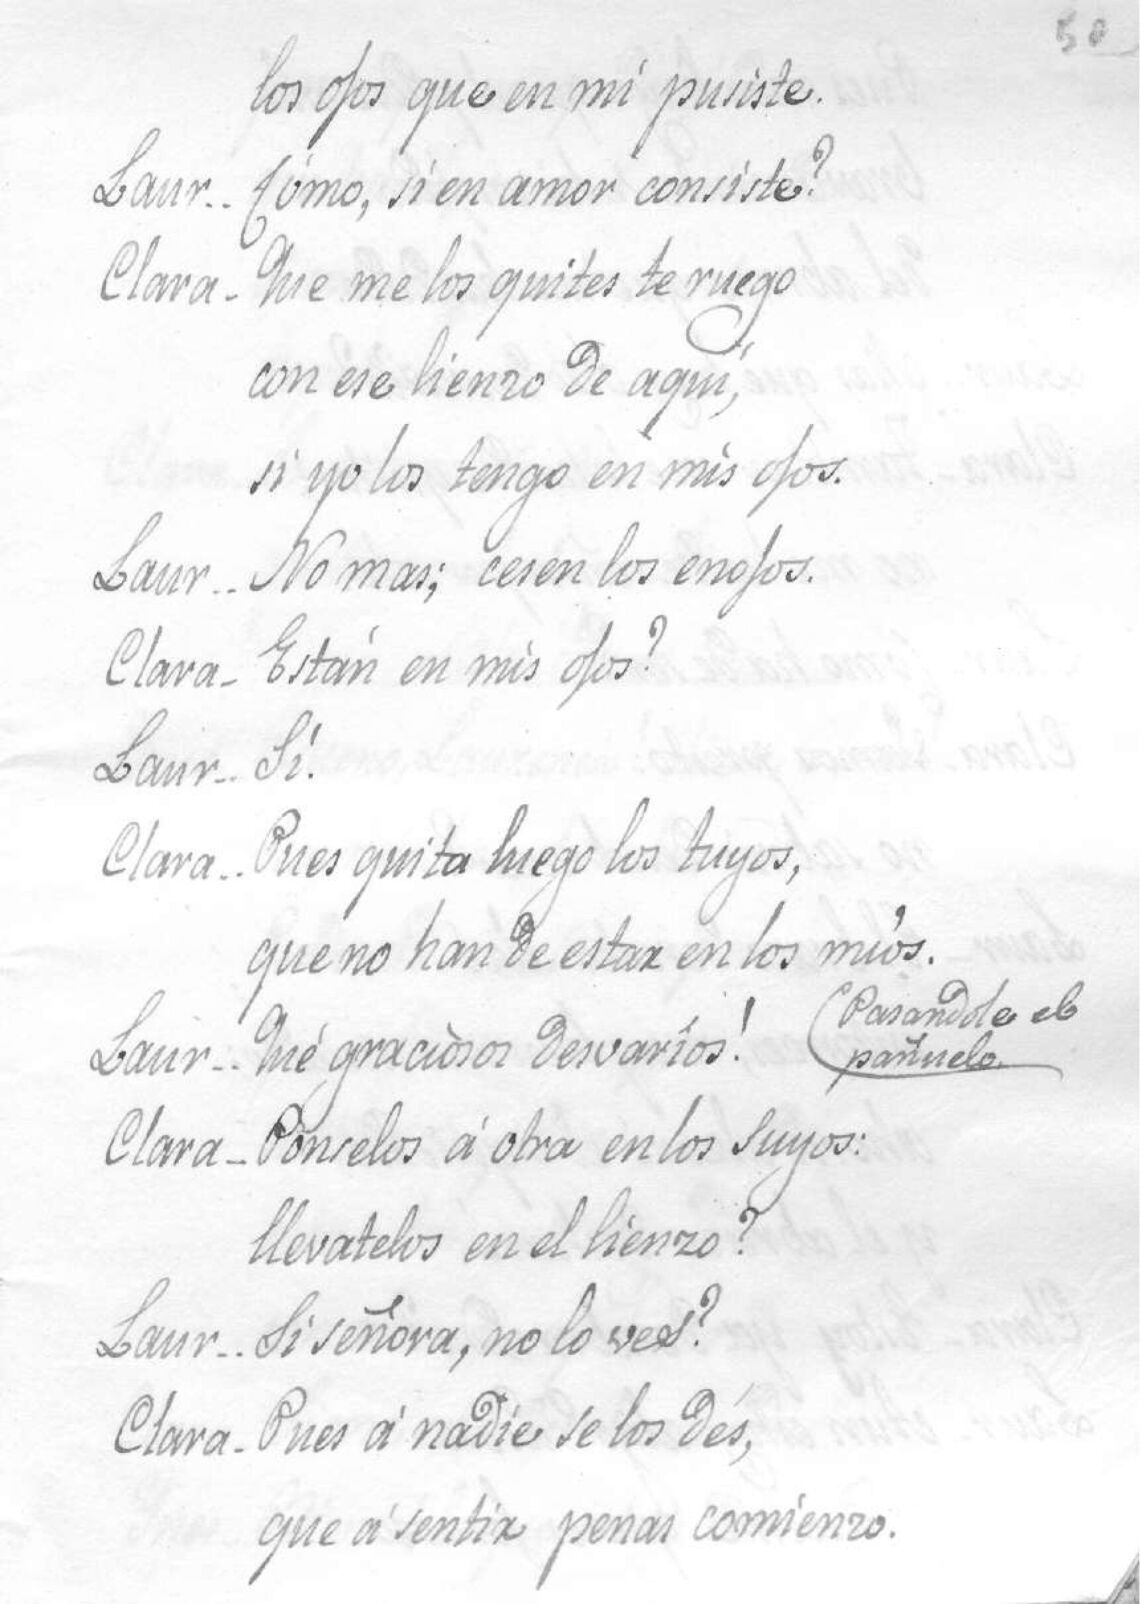 50
los ojos que en mí pusiste.
Laur.. Cómo, si en amor consiste?
Clara - Que me los quites te ruego
con ese lienzo de aquí,
si yo los tengo en mis ojos.
Laur.. No mas; cesen los enojos.
Clara - Están en mis ojos?
Laur.. Sí!
Clara.. Pues quita luego los tuyos,
que no han de estar en los míos.
Laur.. Qué graciosos desvaríos! (Pasandole el
pañuelo.
Clara - Pónselos á otra en los suyos:
llevatelos en el lienzo?
Laur.. Si señora, no lo ves?
Clara - Pues á nadie se los dés,
que á sentir penas comienzo.